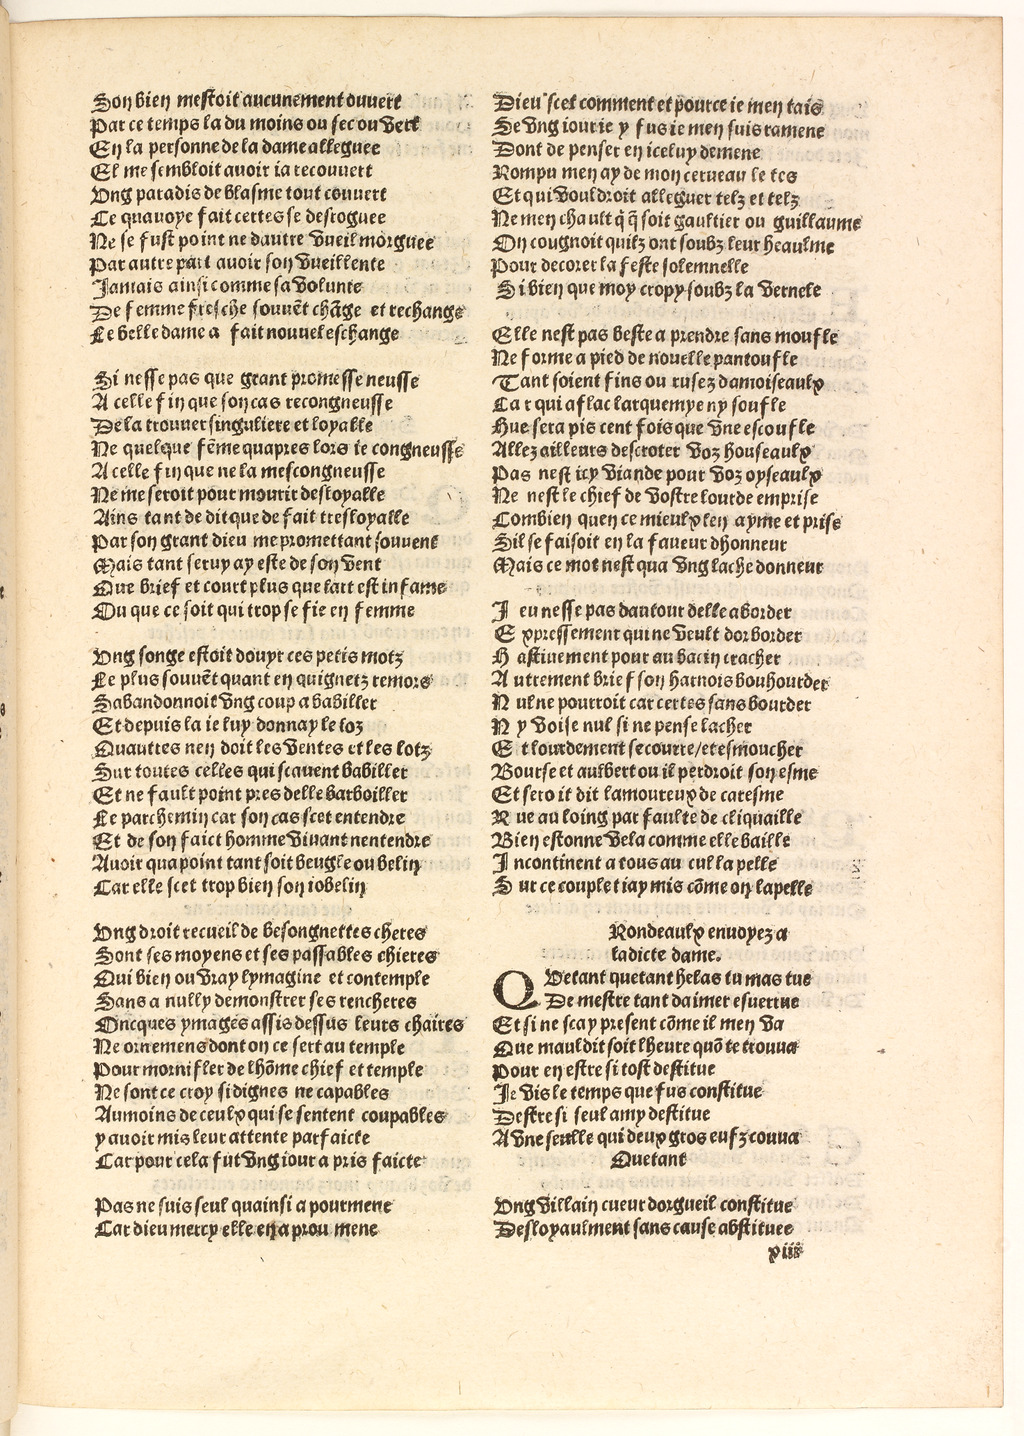 Son bien mestoit aucunement ouuert
Par ce temps la du moins ou sec ou vert
En la personne de la dame alleguee
El me sembloit auoir ia recouuert
Vng paradis de blasme tout couuert
Ce quauoye fait certes se desroguee
Ne se fust point ne dautre vueil morguee
Par autre part auoir son vueillente
Jamais ainsi comme sa volunte
De femme fresche souuēt chāge et rechange
Le belle dame a fait nouuel eschange
Si nesse pas que grant promesse neusse
A celle fin que son cas recongneusse
De la trouuer singuliere et loyalle
Ne quelque fēme quapres lors ie congneusse
A celle fin que ne la mescongneusse
Ne me seroit pour mourir desloyalle
Ains tant de dit que de fait tresloyalle
Par son grant dieu me promettant souuent
Mais tant seruy ay este de son vent
Que brief et court plus que lart est infame
Ou que ce soit qui trop se fie en femme
Vng songe estoit douyr ces petis motz
Le plus souuēt quant en quignetz remors
Sabandonnoit vng coup a babiller
Et depuis la ie luy donnay le loz
Quautres nen doit les ventes et les lotz
Sur toutes celles qui scauent babiller
Et ne fault point pres delle barboiller
Le parchemin car son cas scet entendre
Et de son faict homme viuant nentendre
Auoir qua point tant soit beugle ou belin
Car elle scet trop bien son iobelin
Vng droit recueil de besongnettes cheres
Sont ses moyens et ses passables chieres
Qui bien ou vray lymagine et contemple
Sans a nully demonstrer ses rencheres
Oncques ymages assis dessus leurs chaires
Ne ornemens dont on ce sert au temple
Pour mornifler de lhōme chief et temple
Ne sont ce croy si dignes ne capables
Aumoins de ceulx qui se sentent coupables
y auoir mis leur attente parfaicte
Car pour cela fut vng iour a pris faicte
Pas ne suis seul quainsi a pourmene
Car dieu mercy elle en a prou mene
Dieu scet comment et pource ie men tais
Se vng iour ie y fus ie men suis ramene
Dont de penser en iceluy demene
Rompu men ay de mon cerueau le tes
Et qui vouldroit alleguer telz et telz
Ne men chault q̄ q̄ soit gaultier ou guillaume
On cougnoit quilz ont soubz leur heaulme
Pour decorer la feste solemnelle
Si bien que moy cropy soubz la vernele
Elle nest pas beste a prendre sans moufle
Ne forme a pied de nouelle pantoufle
Tant soient fins ou rusez damoiseaulx
Car qui a flac larquemye ny soufle
Hue sera pis cent fois que vne escoufle
Allez ailleurs descroter voz houseaulx
Pas nest icy viande pour voz oyseaulx
Ne nest le chief de vostre lourde emprise
Combien quen ce mieulx len ayme et prise
Sil se faisoit en la faueur dhonneur
Mais ce mot nest qua vng lache donneur
J eu nesse pas dantour delle aborder
E xpressement qui ne veult dorborder
H astiuement pour au bacin cracher
A utrement brief son harnois bouhourder
N ul ne pourroit car certes sans bourder
N y voise nul si ne pense lacher
E t lourdement secourre/et esmoucher
Bourse et aulbert ou il perdroit son esme
Et seroit dit lamoureux de caresme
R ue au loing par faulte de cliquaille
Bien estonne vela comme elle baille
I ncontinent a tous au cul la pelle
S ur ce couplet iay mis cōme on lapelle
Rondeaulx enuoyez a
ladicte dame.
QVetant quetant helas tu mas tue
De mestre tant daimer esuertue
Et si ne scay present cōme il men va
Que mauldit soit lheure quō te trouua
Pour en estre si tost destitue
Je vis le temps que fus constitue
Destre si seul amy destitue
A vne seulle qui deux gros eufz couua
Quetant
Vng villain cueur dorgueil constitue
Desloyaulment sans cause abstituee